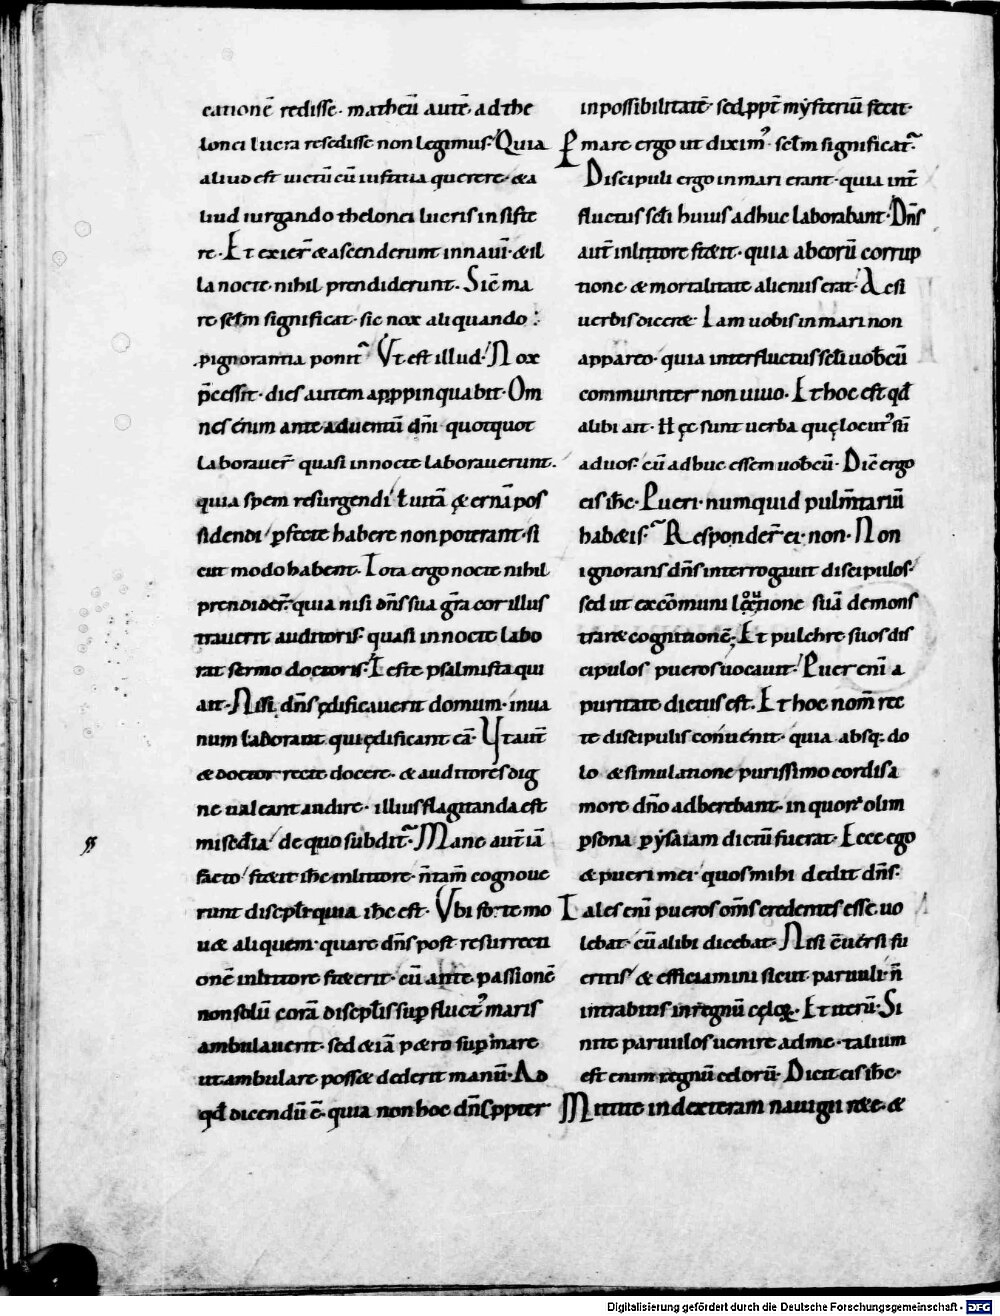 cationē redisse. matheū autē. ad the
lonei lucra resedisse non legimus. Quia
aliud est uictū cū iustitia querere. & a
liud iurgando thelonei lucris insiste
re. Et exier̄ & ascenderunt in nauī. & il
la nocte nihil prendiderunt. Sic̄ ma
re sc̄lm significat. sic nox aliquando
p ignorantia ponit̄. Vt est illud. Nox
p̄cessit. dies autem apppinquabit. Om
nes enim ante aduentū dn̄i quotquot
laborauer̄ quasi in nocte laborauerunt.
quia spem resurgendi ł uitā ę ernā pos
sidendi pfecte habere non poterant. si
cut modo habent. Tota ergo nocte nihil
prendider̄. quia nisi dn̄s sua gr̄a cor illus
trauerit auditoris. quasi in nocte labo
rat sermo doctoris. Teste psalmista qui
ait. Nisi dn̄s ędificauerit domum. inua
num laborant qui ędificant eā. Vt aut̄
& doctor recte docere. & auditores dig
ne ualeant audire. illius flagitanda est
misc̄dia de quo subdit̄. Mane aut̄ iā
facto stetit ih̄c in littore. n̄ tam̄ cognoue
runt discipl̄i quia ih̄c est. Vbi forte mo
u& aliquem. quare dn̄s post resurrecti
onē in littore steterit. cū ante passionē
non solū corā discipl̄is sup fluct' maris
ambulauerit. sed & iā p&ro sup mare
ut ambulare poss& dederit manū. Ad
qd̄ dicendū ē. quia non hoc dn̄s ppter
inpossibilitatē. sed ppt̄ mysteriū fecit.
Per mare ergo ut dixim'. sc̄lm significat̄.
Discipuli ergo in mari erant. quia int̄
fluctus sc̄li huius adhuc laborabant. Dn̄s
aut̄ in littore stetit. quia ab eorū corrup
tione & mortalitate alienus erat. Ac si
uerbis dicer&. Iam uobis in mari non
appareo. quia inter fluctus sc̄li uobcū
communiter non uiuo. Et hoc est qd̄
alibi ait. Hęc sunt uerba quę locut' sū
ad uos. cū adhuc essem uobcū. Dic̄ ergo
eis ih̄c. Pueri. numquid pulm̄tariū
hab&is. Responder̄ ei. non. Non
ignorans dn̄s interrogauit discipulos.
sed ut ex cōmuni locutione suā demons
trar& cognitionē. Et pulchre suos dis
cipulos pueros uocauit. Puer enī a
puritate dictus est. Et hoc nom̄ rec
te discipulis conuenit. quia absq; do
lo & simulatione purissimo cordis a
more dn̄o adherebant. in quor̄ olim
psona p ysaiam dictū fuerat. Ecce ego
& pueri mei quos mihi dedit dn̄s.
Tales enī pueros om̄s credentes esse uo
lebat. cū alibi dicebat. Nisi ēuersi fu
eritis & efficiamini sicut paruuli. n̄
intrabitis in regnū cęloꝝ. Et iterū. Si
nite paruulos uenire ad me. talium
est enim regnū celorū. Dicit eis ih̄c.
Mittite in dexteram nauigii r&e. &
Digitalisierung gefördert durch die Deutsche Forschungsgemeinschaft - DFG